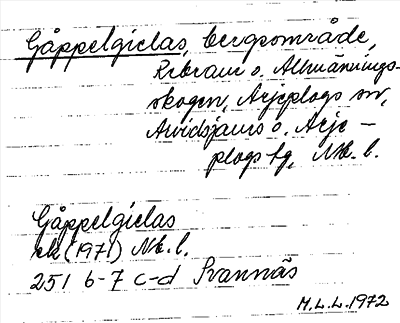 Gåppelgielas, bergsområde,
Kronan o. Allmännings-
skogen, Arjeplogs sn,
Arvidsjaurs o. Arje-
plogs tg, Nb. l.
Gåppelgielas
ek (1971) Nb. l.
25I 6-7 c-d Svannäs
M.L.L. 1972